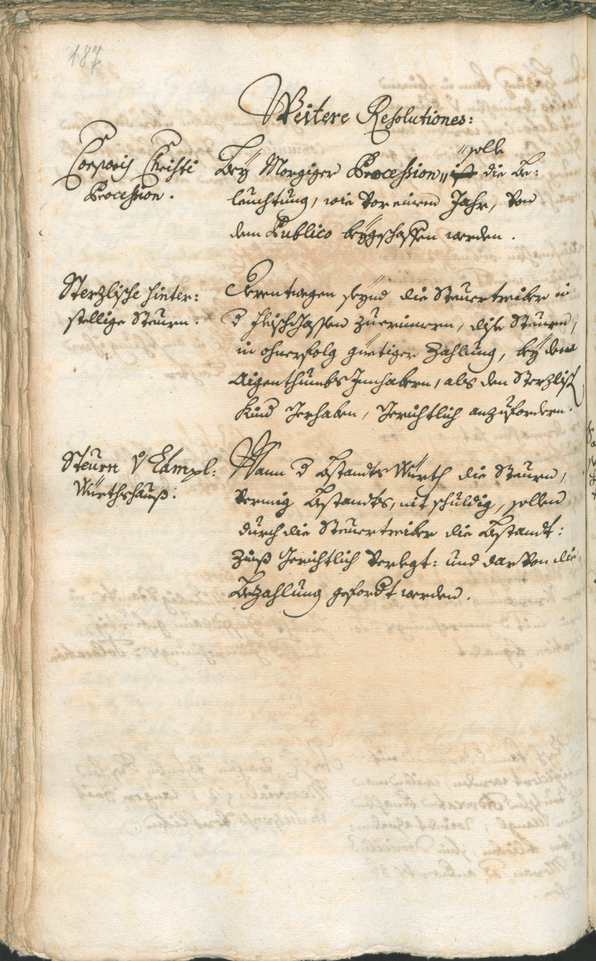 187
Weitere Resolutiones:
Corporis Christi
Procession.
Bey Morgiger Procession, solle die Be:
leuchtung, wie vor einem Jahr, von
dem Publico beygschaffen werden.
Sterzlische hinter:
stellige Steurn:
Derentwegen seynd die Steurtreiber in
d zuerinern, dise Steurn,
in ohnerfolg güetiger Zahlung, bey denen
Aigenthumbs Innhabern, als den Sterzlisch
Kind Gerhaben, Gerichtlich anzufordern.
Steurn v Lämpl:
Würthshauß:
Wann d Bstandts Würth die Steurn,
vermög Bstandts, nit schuldig, sollen
durch die Steurtreiber die Bstandt:
Zinß Gerichtlich verlegt: und darvon die
Bezahlung gefordt werden.